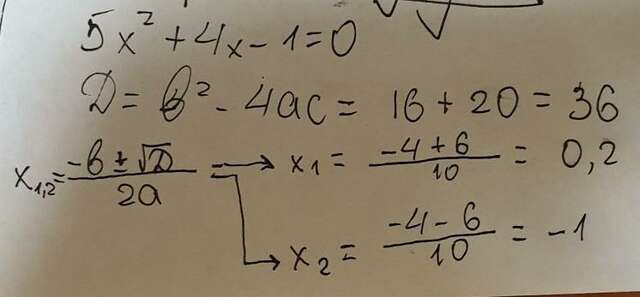 5x² + 4x - 1 = 0
D = b² - 4ac = 16 + 20 = 36
x₁,₂ = (-b ± √D)/2a → x₁ = (-4 + 6)/10 = 0,2
→ x₂ = (-4 - 6)/10 = -1